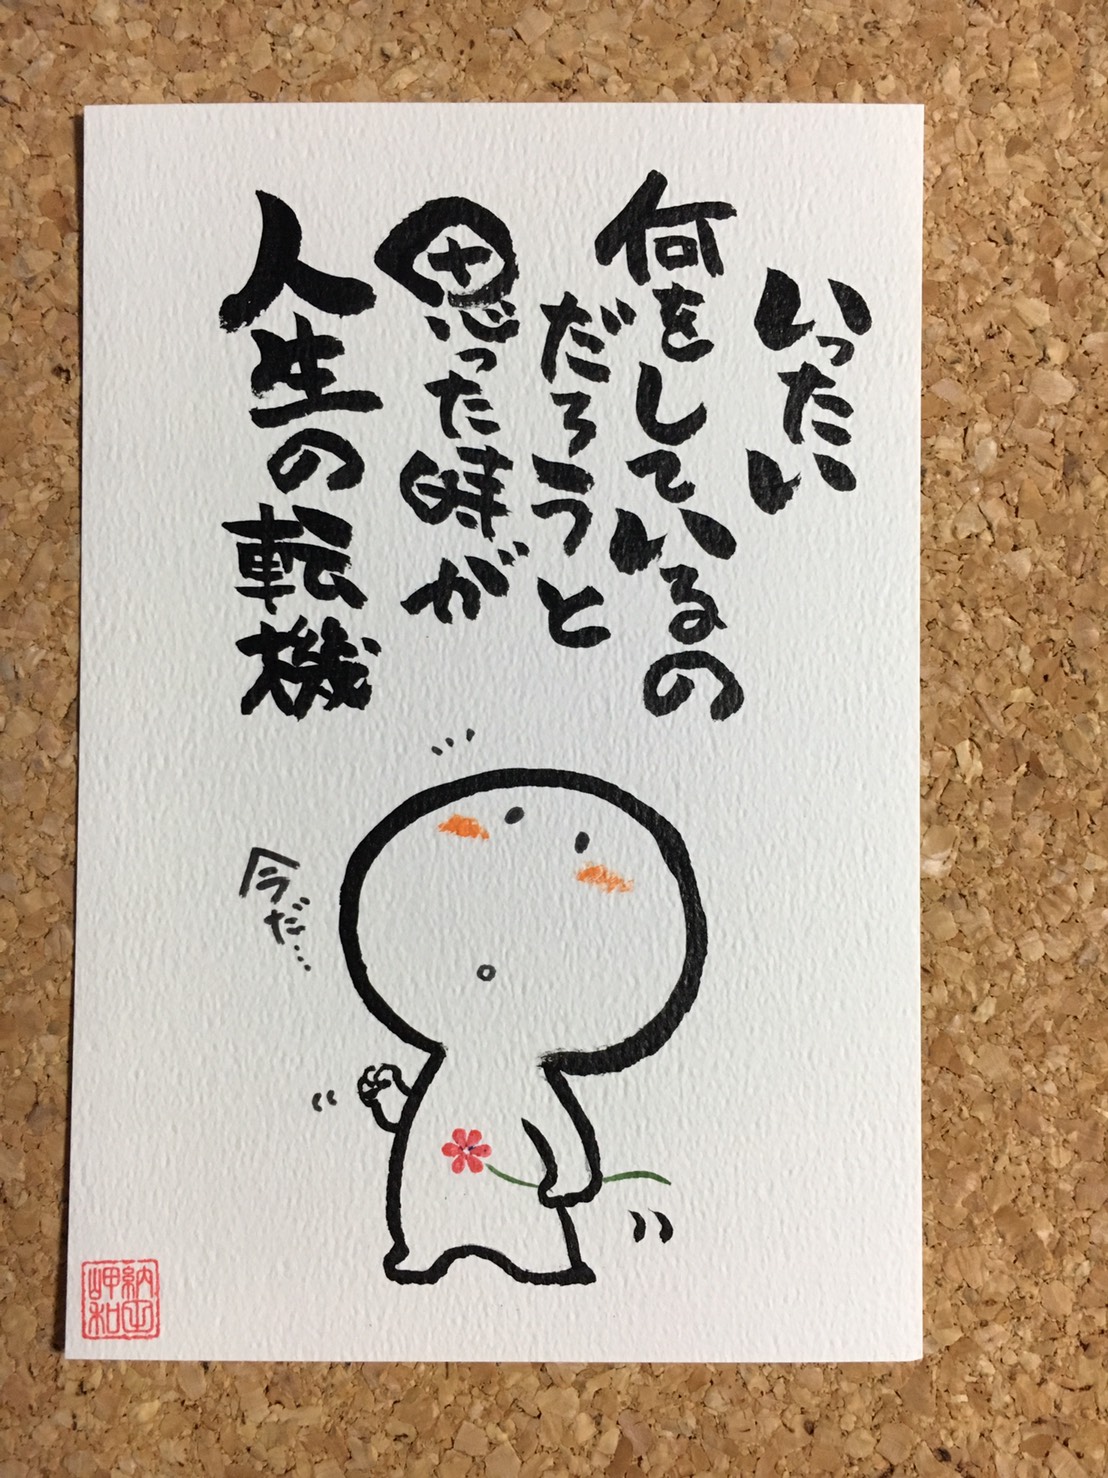 いったい
何をしているの
だろうと
思った時が
人生の転機
今だ…
納田
岬和